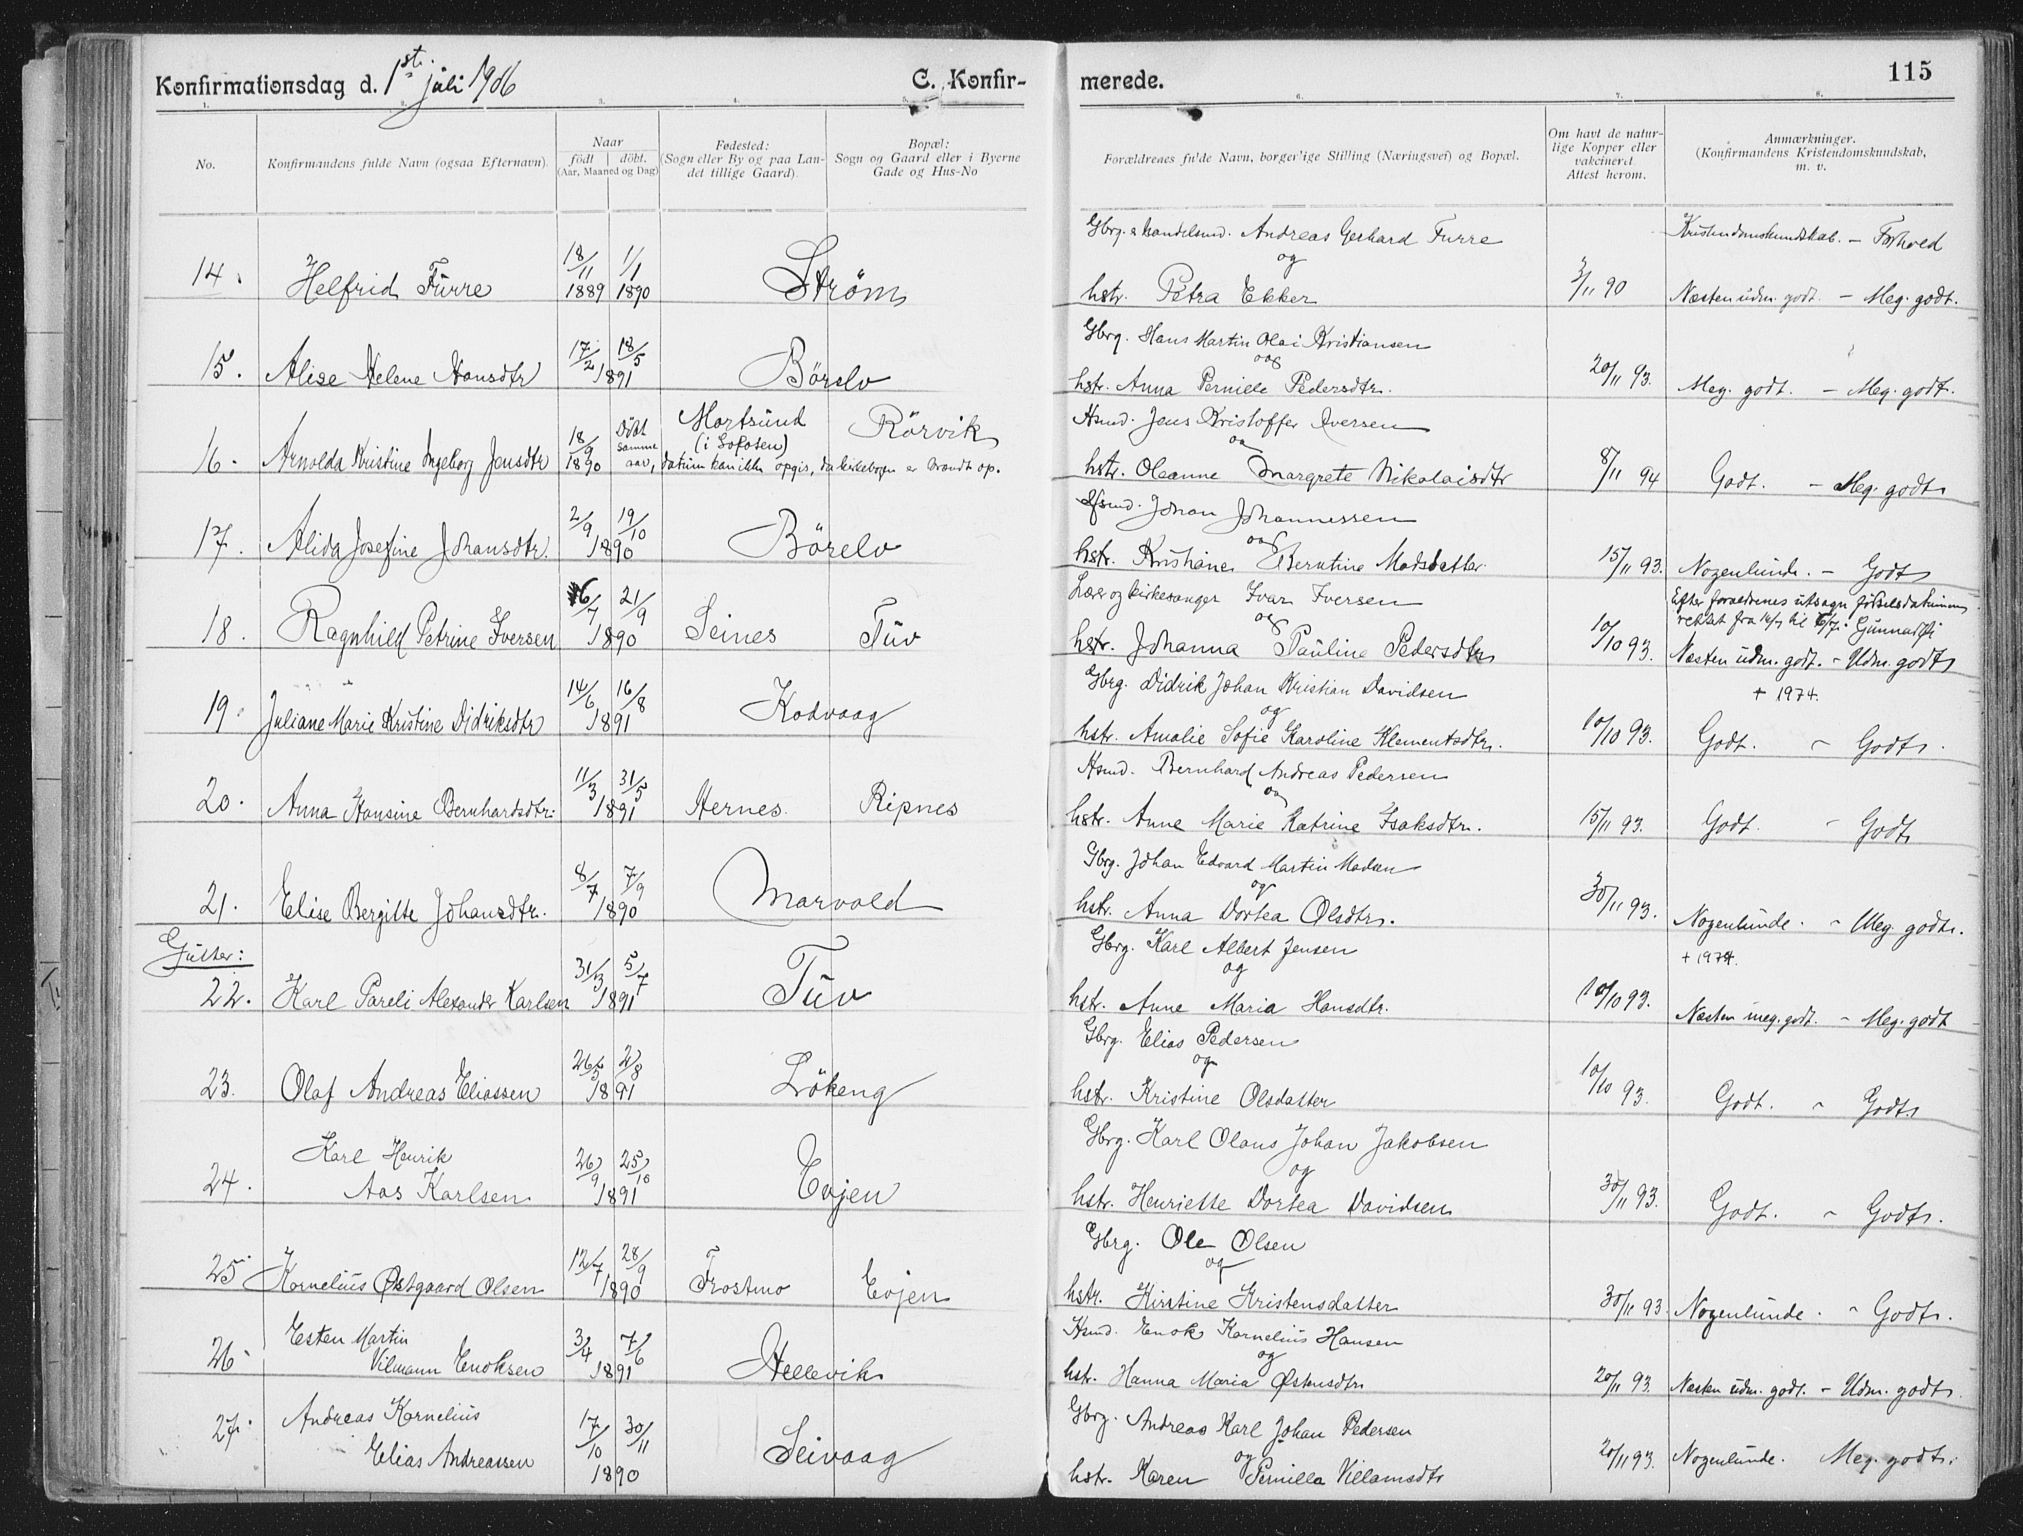 Konfirmationsdag d. 1st juli 1906 C. Konfir-
merede. 115
1. 2. 3. 4. 5. 6. 7. 8.
No.
Konfirmandens fulde Navn (ogsaa Efternavn).
Naar
födt | döbt.
(Aar, Maaned og Dag)
Fødested:
(Sogn eller By og paa Lan-
det tillige Gaard).
Bopæl:
Sogn og Gaard eller i Byerne
Gade og Hus-No
Forældrenes fulde Navn, borgerlige Stilling (Næringsvei) og Bopæl.
Om havt de natur-
lige Kopper eller
vakcineret.
Attest herom.
Anmærkninger.
(Konfirmandens Kristendomskundskab,
m. v.
Kristendomskundskab. – Forhold
Gbrg. & handelsmd. Andreas Gerhard Furre
og
14. Helfrid Furre 18/11 1889 1/1 1890 Strøm hstr. Petra Ekker 3/11 90 Næsten udm. godt. – Meg. godt.
Gbrg. Hans Martin Olai Kristiansen
og
15. Alise Helene Hansdtr 17/2 18/5 1891 Börelv hstr. Anna Pernille Pedersdtr. 20/11 93. Meg. godt. – Meg. godt.
Hsmd. Jens Kristoffer Iversen
og
16. Arnolda Kristine Ingeborg Jensdtr 18/9 1890 Döbt samme aar, datum kan ikke opgis, da kirkebogen er brændt op.
Mortsund
(i Lofoten)
Rörvik
hstr. Oleanne Margrete Nikolaisdtr 8/11 94 Godt. – Meg. godt
Hsmd. Johan Johannessen
og
17. Alida Josefine Johansdtr. 2/9 19/10 1890 Börelv hstr. Kristiane Berntine Madsdatter 15/11 93. Nogenlunde. – Godt
Lærer og kirkesanger Ivar Iversen
og
Efter forældrenes utsagn fødselsdatumen
rettet fra 16/7 til 6/7.
18. Ragnhild Petrine Iversen 6/7 21/9 1890 Seines Tuv hstr. Johanna Pauline Pedersdtr 10/10 93. Næsten udm. godt. – Udm. godt
Gbrg. Didrik Johan Kristian Davidsen
og
+ 1974.
19. Juliane Marie Kristine Didriksdtr 14/6 16/8 1891 Kodvaag hstr. Amalie Sofie Karoline Klementsdtr. 10/10 93. Godt. – Godt.
Hsmd. Bernhard Andreas Pedersen
og
20. Anna Hansine Bernhardsdtr. 11/3 31/5 1891 Hernes. Ripnes hstr. Anne Marie Katrine Isaksdtr. 15/11 93. Godt. – Godt
Gbrg. Johan Edvard Martin Madsen
og
21. Elise Bergitte Johansdtr. 8/7 7/9 1890 Marvold hstr. Anna Dortea Olsdtr. 30/11 93. Nogenlunde. – Meg. godt.
Gutter:
Gbrg. Karl Albert Jensen
og
+ 1974.
22. Karl Pareli Alexander Karlsen 31/3 5/7 1891 Tuv hstr. Anne Maria Hansdtr. 10/10 93. Næsten meg. godt. – Meg. godt
Gbrg. Elias Pedersen
og
23. Olaf Andreas Eliassen 26/5 2/8 1891 Lökeng hstr. Kristine Olsdatter 10/10 93. Godt. – Godt.
Gbrg. Karl Olaus Johan Jakobsen
og
24. Karl Henrik
Aas Karlsen 26/9 25/10 1891 Evjen hstr. Henriette Dortea Davidsen 30/11 93. Godt. – Godt.
Gbrg. Ole Olsen
og
25. Kornelius Østgaard Olsen 12/7 28/9 1890 Frostmo Evjen hstr. Kirstine Kristensdatter 30/11 93. Nogenlunde. – Godt.
Hsmd. Enok Kornelius Hansen
og
26. Esten Martin
Vilmann Enoksen 3/4 7/6 1891 Hellevik hstr. Hanna Maria Østensdtr 20/11 93. Næsten udm. godt. – Udm. godt.
Gbrg. Andreas Karl Johan Pedersen
og
27. Andreas Kornelius
Elias Andreassen 17/10 30/11 1890 Seivaag hstr. Karen Pernilla Villamsdtr 20/11 93. Nogenlunde. Meg. godt.